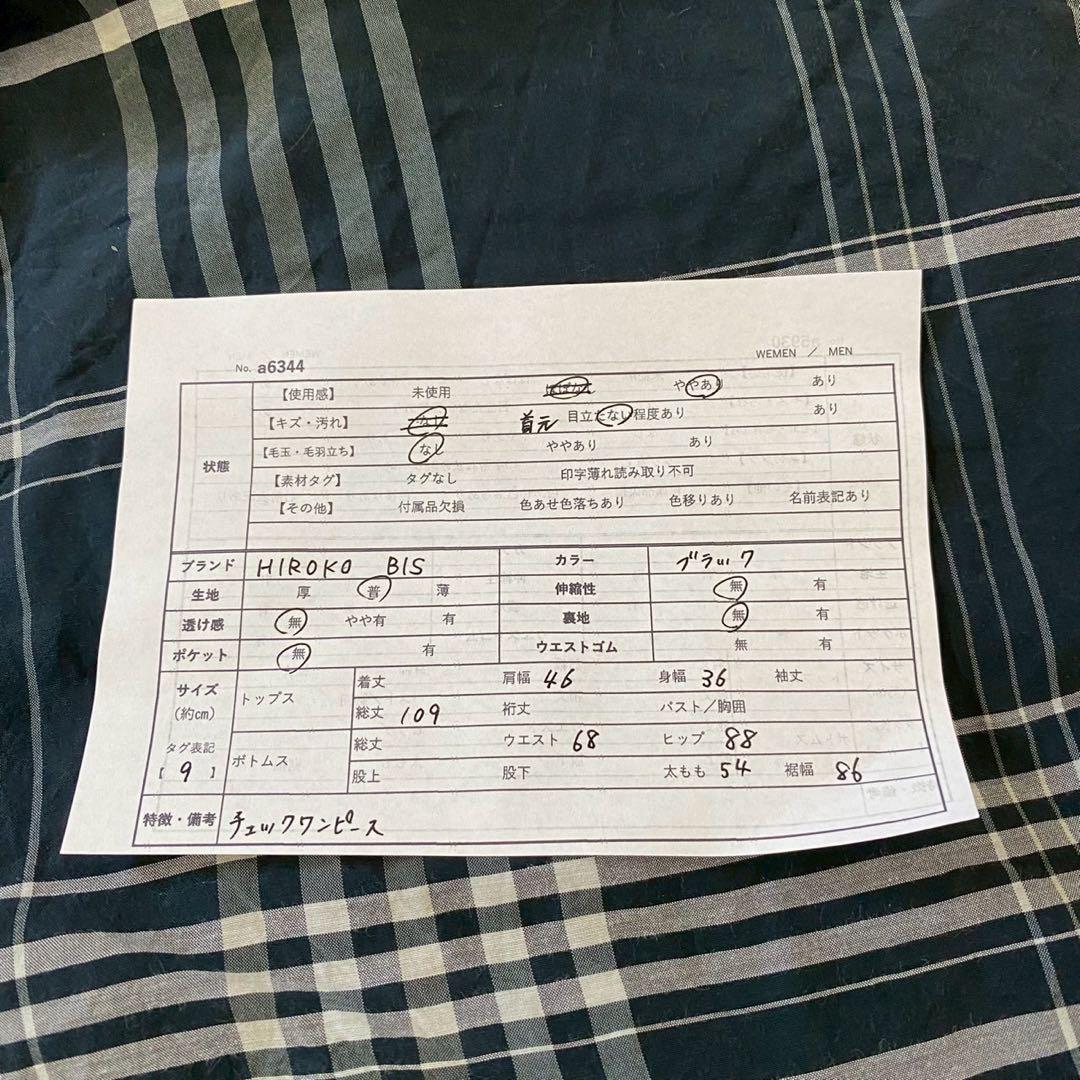 No. a6344 WEMEN / MEN
状態
【使用感】 未使用 ほぼなし ややあり あり
【キズ・汚れ】 なし 首元 目立たない程度あり あり
【毛玉・毛羽立ち】 なし ややあり あり
【素材タグ】 タグなし 印字薄れ読み取り不可
【その他】 付属品欠損 色あせ色落ちあり 色移りあり 名前表記あり
ブランド HIROKO BIS カラー ブラック
生地 厚 普 薄 伸縮性 無 有
透け感 無 やや有 有 裏地 無 有
ポケット 無 有 ウエストゴム 無 有
サイズ (約cm) トップス 着丈 肩幅 46 身幅 36 袖丈
総丈 109 裄丈 バスト/胸囲
タグ表記 [ 9 ] ボトムス 総丈 ウエスト 68 ヒップ 88
股上 股下 太もも 54 裾幅 86
特徴・備考 チェックワンピース